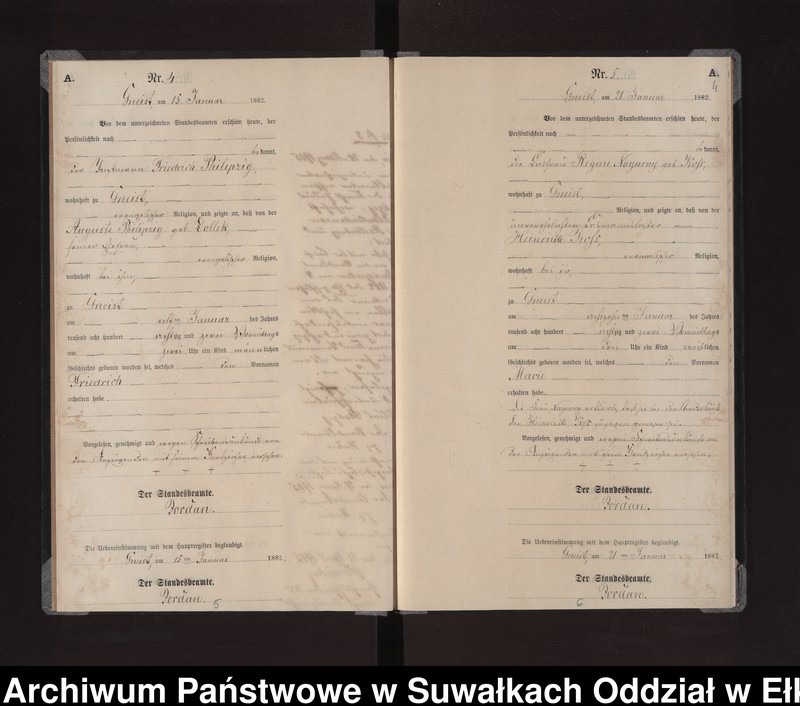 A.
Nr. 4
Gneist, am 15. Januar 1882.
Vor dem unterzeichneten Standesbeamten erschien heute, der
Persönlichkeit nach
bekannt,
der Friedrich Philipzig,
wohnhaft zu Gneist,
evangelischer Religion, und zeigte an, daß von der
Auguste Philipzig geb.
seiner Ehefrau,
evangelischer Religion,
wohnhaft bei ihm,
zu Gneist
am Januar des Jahres
tausend acht hundert achtzig und zwei Vormittags
um zwei Uhr ein Kind männlichen
Geschlechts geboren worden sei, welches den Vornamen
Friedrich
erhalten habe.
Vorgelesen, genehmigt und wegen Schreibensunkunde von
dem Anzeigenden mit seinem Handzeichen versehen.
+ + +
Der Standesbeamte.
Jordan.
Die Uebereinstimmung mit dem Hauptregister beglaubigt.
Gneist, am 15ten Januar 1882.
Der Standesbeamte.
Jordan.
5
A.
4
Nr. 5
Gneist, am 21 Januar 1882.
Vor dem unterzeichneten Standesbeamten erschien heute, der
Persönlichkeit nach
bekannt,
die Regine Nagorny geb.
wohnhaft zu Gneist,
Religion, und zeigte an, daß von der
unverehelichten
Heinriette
evangelischer Religion,
wohnhaft bei ihr,
zu Gneist
am Januar des Jahres
tausend acht hundert achtzig und zwei Vormittags
um Uhr ein Kind weiblichen
Geschlechts geboren worden sei, welches den Vornamen
Marie
erhalten habe.
Die Frau Nagorny erklärte, daß sie bei der Niederkunft
der Heinriette zugegen gewesen sei.
Vorgelesen, genehmigt und wegen Schreibensunkunde von
der Anzeigenden mit ihrem Handzeichen versehen.
+ + +
Der Standesbeamte.
Jordan.
Die Uebereinstimmung mit dem Hauptregister beglaubigt.
Gneist, am 21ten Januar 1882
Der Standesbeamte.
Jordan.
6
Archiwum Państwowe w Suwałkach Oddział w Ełk